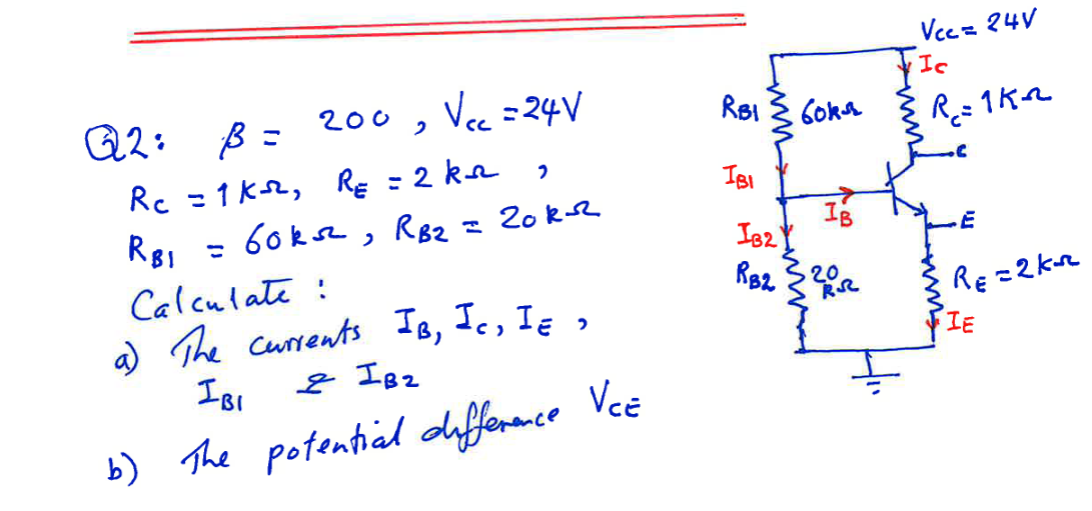 Q2: β = 200 , Vcc = 24V
Rc = 1 KΩ, RE = 2 kΩ ,
RB1 = 60kΩ , RB2 = 20kΩ
Calculate :
a) The currents IB, Ic, IE ,
IB1 & IB2
b) The potential difference VCE
Vcc = 24V
Ic
RB1 60kΩ
Rc = 1KΩ
C
IB1
IB
E
IB2
RB2 20 kΩ
RE = 2kΩ
IE